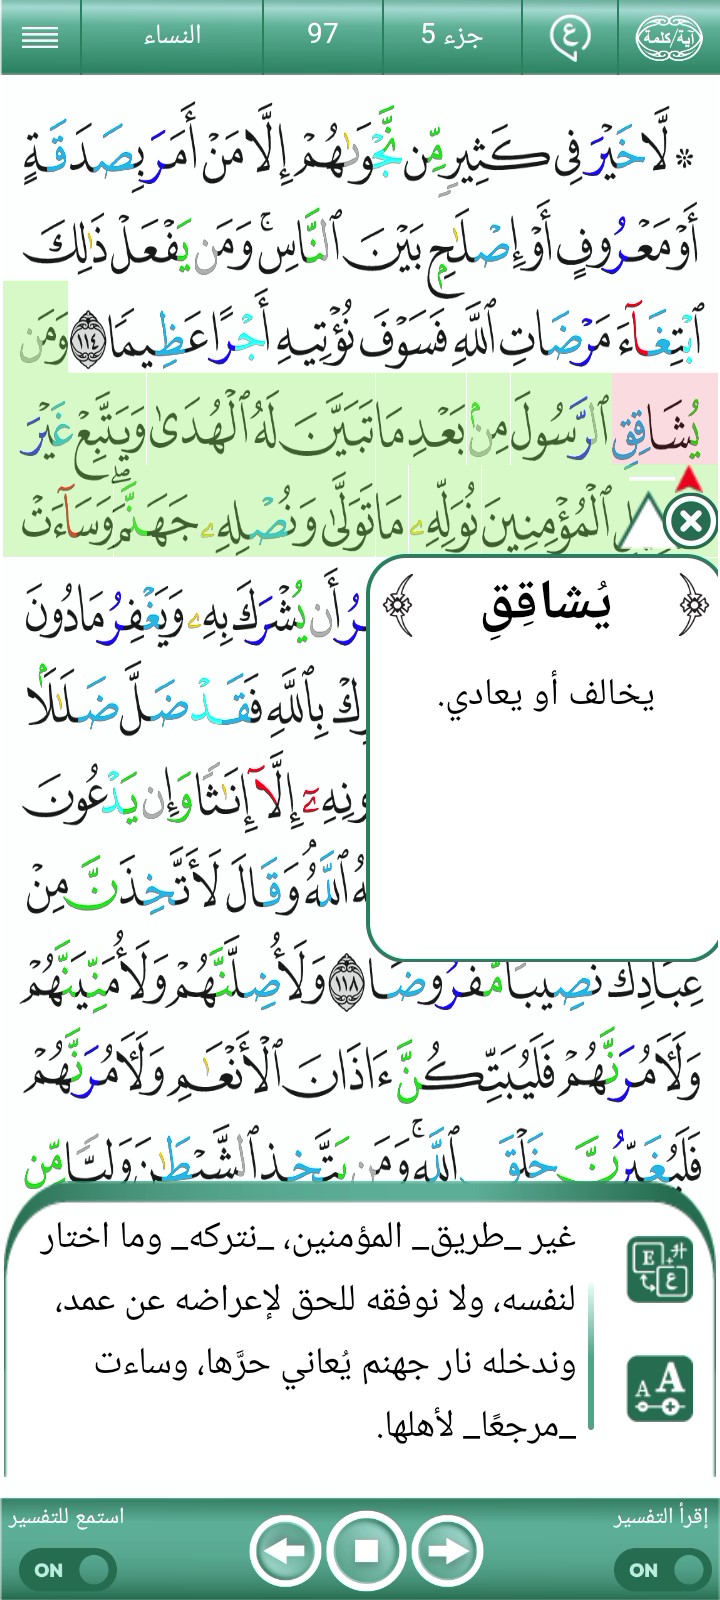 آية/كلمة
ع
جزء 5
97
النساء
۞ لَّا خَيْرَ فِى كَثِيرٍ مِّن نَّجْوَىٰهُمْ إِلَّا مَنْ أَمَرَ بِصَدَقَةٍ
أَوْ مَعْرُوفٍ أَوْ إِصْلَٰحٍۭ بَيْنَ ٱلنَّاسِ ۚ وَمَن يَفْعَلْ ذَٰلِكَ
ٱبْتِغَآءَ مَرْضَاتِ ٱللَّهِ فَسَوْفَ نُؤْتِيهِ أَجْرًا عَظِيمًا ١١٤ وَمَن
يُشَاقِقِ ٱلرَّسُولَ مِنۢ بَعْدِ مَا تَبَيَّنَ لَهُ ٱلْهُدَىٰ وَيَتَّبِعْ غَيْرَ
ٱلْمُؤْمِنِينَ نُوَلِّهِۦ مَا تَوَلَّىٰ وَنُصْلِهِۦ جَهَنَّمَ ۖ وَسَآءَتْ
يُشاقِقِ
يخالف أو يعادي.
أَن يُشْرَكَ بِهِۦ وَيَغْفِرُ مَا دُونَ
بِٱللَّهِ فَقَدْ ضَلَّ ضَلَٰلًۢا
إِلَّآ إِنَٰثًا وَإِن يَدْعُونَ
ٱللَّهُ ۘ وَقَالَ لَأَتَّخِذَنَّ مِنْ
عِبَادِكَ نَصِيبًا مَّفْرُوضًا ١١٨ وَلَأُضِلَّنَّهُمْ وَلَأُمَنِّيَنَّهُمْ
وَلَـَٔامُرَنَّهُمْ فَلَيُبَتِّكُنَّ ءَاذَانَ ٱلْأَنْعَٰمِ وَلَـَٔامُرَنَّهُمْ
فَلَيُغَيِّرُنَّ خَلْقَ ٱللَّهِ ۚ وَمَن يَتَّخِذِ ٱلشَّيْطَٰنَ وَلِيًّا مِّن
غير _طريق_ المؤمنين، _نتركه_ وما اختار
لنفسه، ولا نوفقه للحق لإعراضه عن عمد،
وندخله نار جهنم يُعاني حرَّها، وساءت
_مرجعًا_ لأهلها.
E ع
A A
إقرأ التفسير
استمع للتفسير
ON
ON